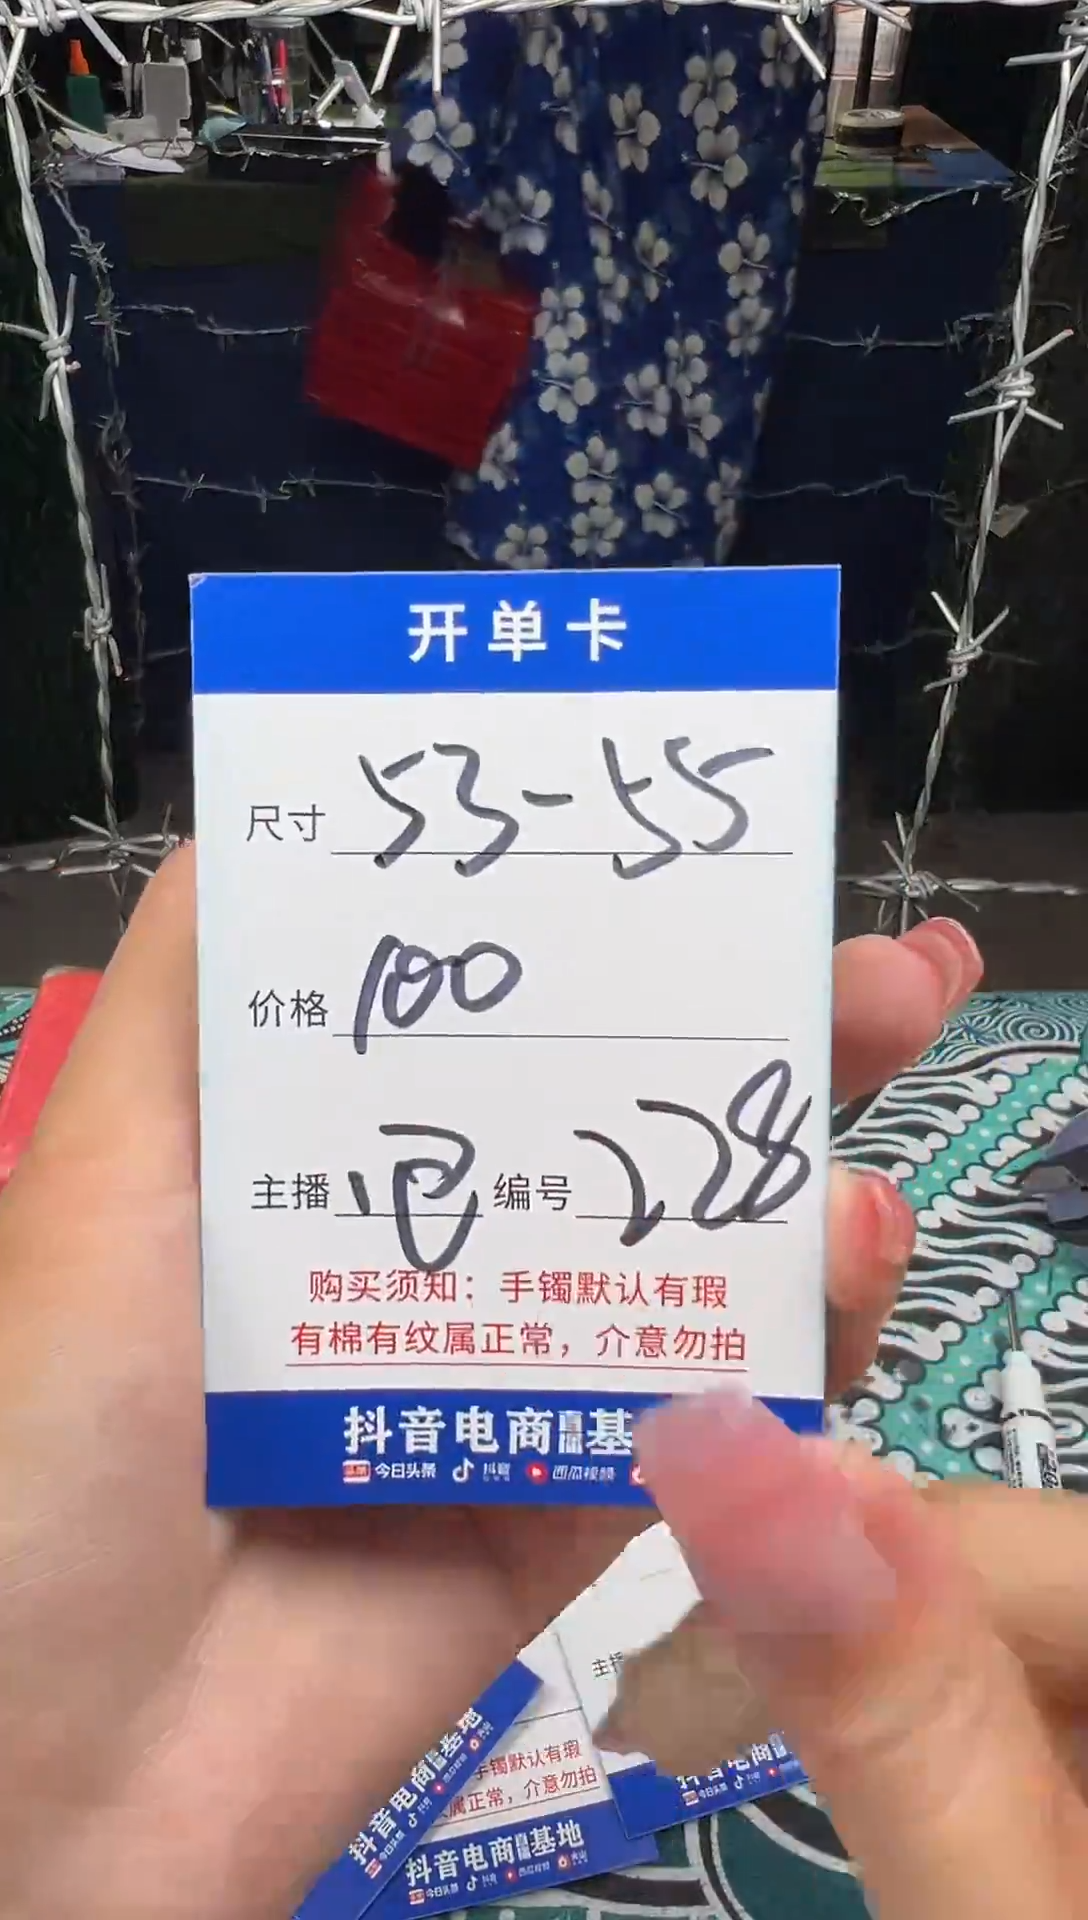 开单卡
尺寸 53-55
价格 100
主播 编号 228
购买须知：手镯默认有瑕
有棉有纹属正常，介意勿拍
抖音电商直播基
今日头条 抖音 西瓜视频
主播
手镯默认有瑕
属正常，介意勿拍
抖音电商直播基地
今日头条 抖音 西瓜视频 火山
抖音电商直播基地
今日头条 抖音 西瓜视频 火山
抖音电商直播
今日头条 抖音